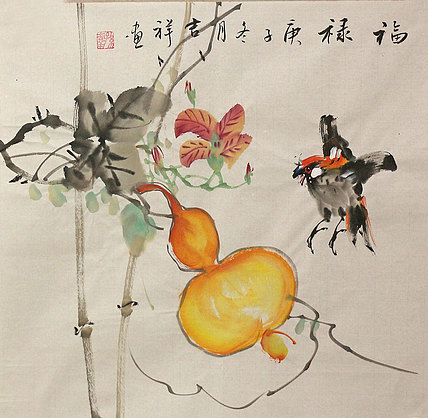 福禄庚子冬月吉祥画